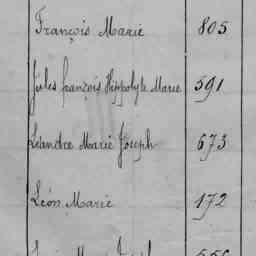 François Marie 805
Jules françois Hippolyte Marie 591
Léandre Marie Joseph 673
Léon Marie 172